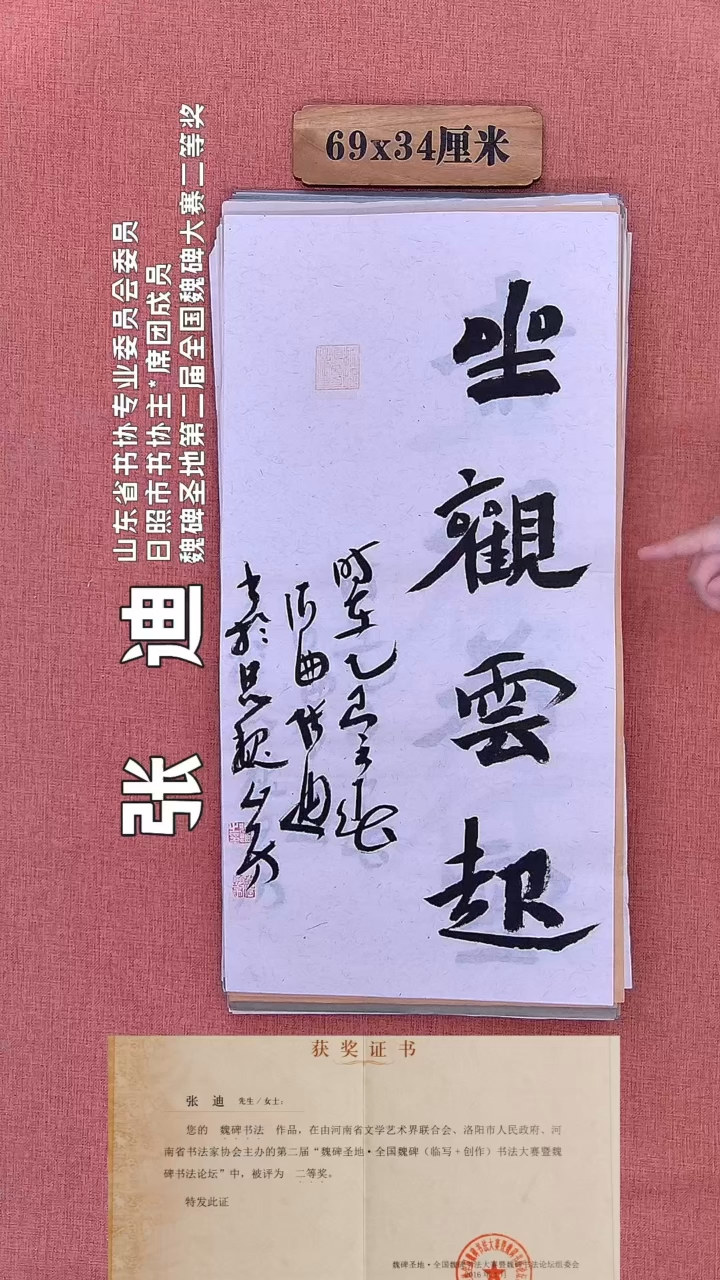 69x34厘米
山东省书协专业委员会委员
日照市书协主*席团成员
魏碑圣地第二届全国魏碑大赛二等奖
张 迪
坐觀雲起
时在乙巳之春
张迪
书於思魏山房
获奖证书
张 迪 先生/女士：
您的 魏碑书法 作品，在由河南省文学艺术界联合会、洛阳市人民政府、河
南省书法家协会主办的第二届“魏碑圣地·全国魏碑（临写+创作）书法大赛暨魏
碑书法论坛”中，被评为 二等奖。
特发此证
魏碑圣地·全国魏碑书法大赛暨魏碑书法论坛组委会